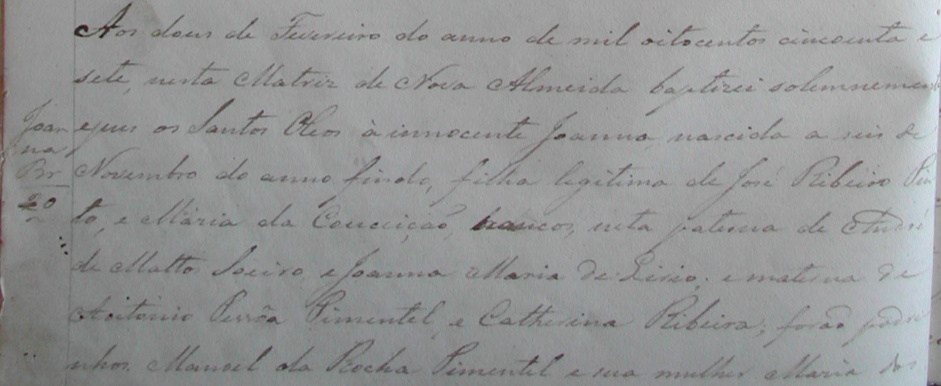 Aos dous de Fevereiro do anno de mil oitocentos cincoenta e
sete, nesta Matriz de Nova Almeida baptizei solemnement
Joan
na
Br
20
e puz os Santos Oleos à innocente Joanna, nascida a seis de
Novembro do anno findo, filha legitima de José Ribeiro Pin
to, e Maria da Conceição, brancos, neta paterna de André
de Mattos Soeiro e Joanna Maria de Lirio; e materna de
Antonio Pimentel, e Catherina Ribeira; forão padri
nhos Manoel da Rocha Pimentel e sua mulher Maria dos